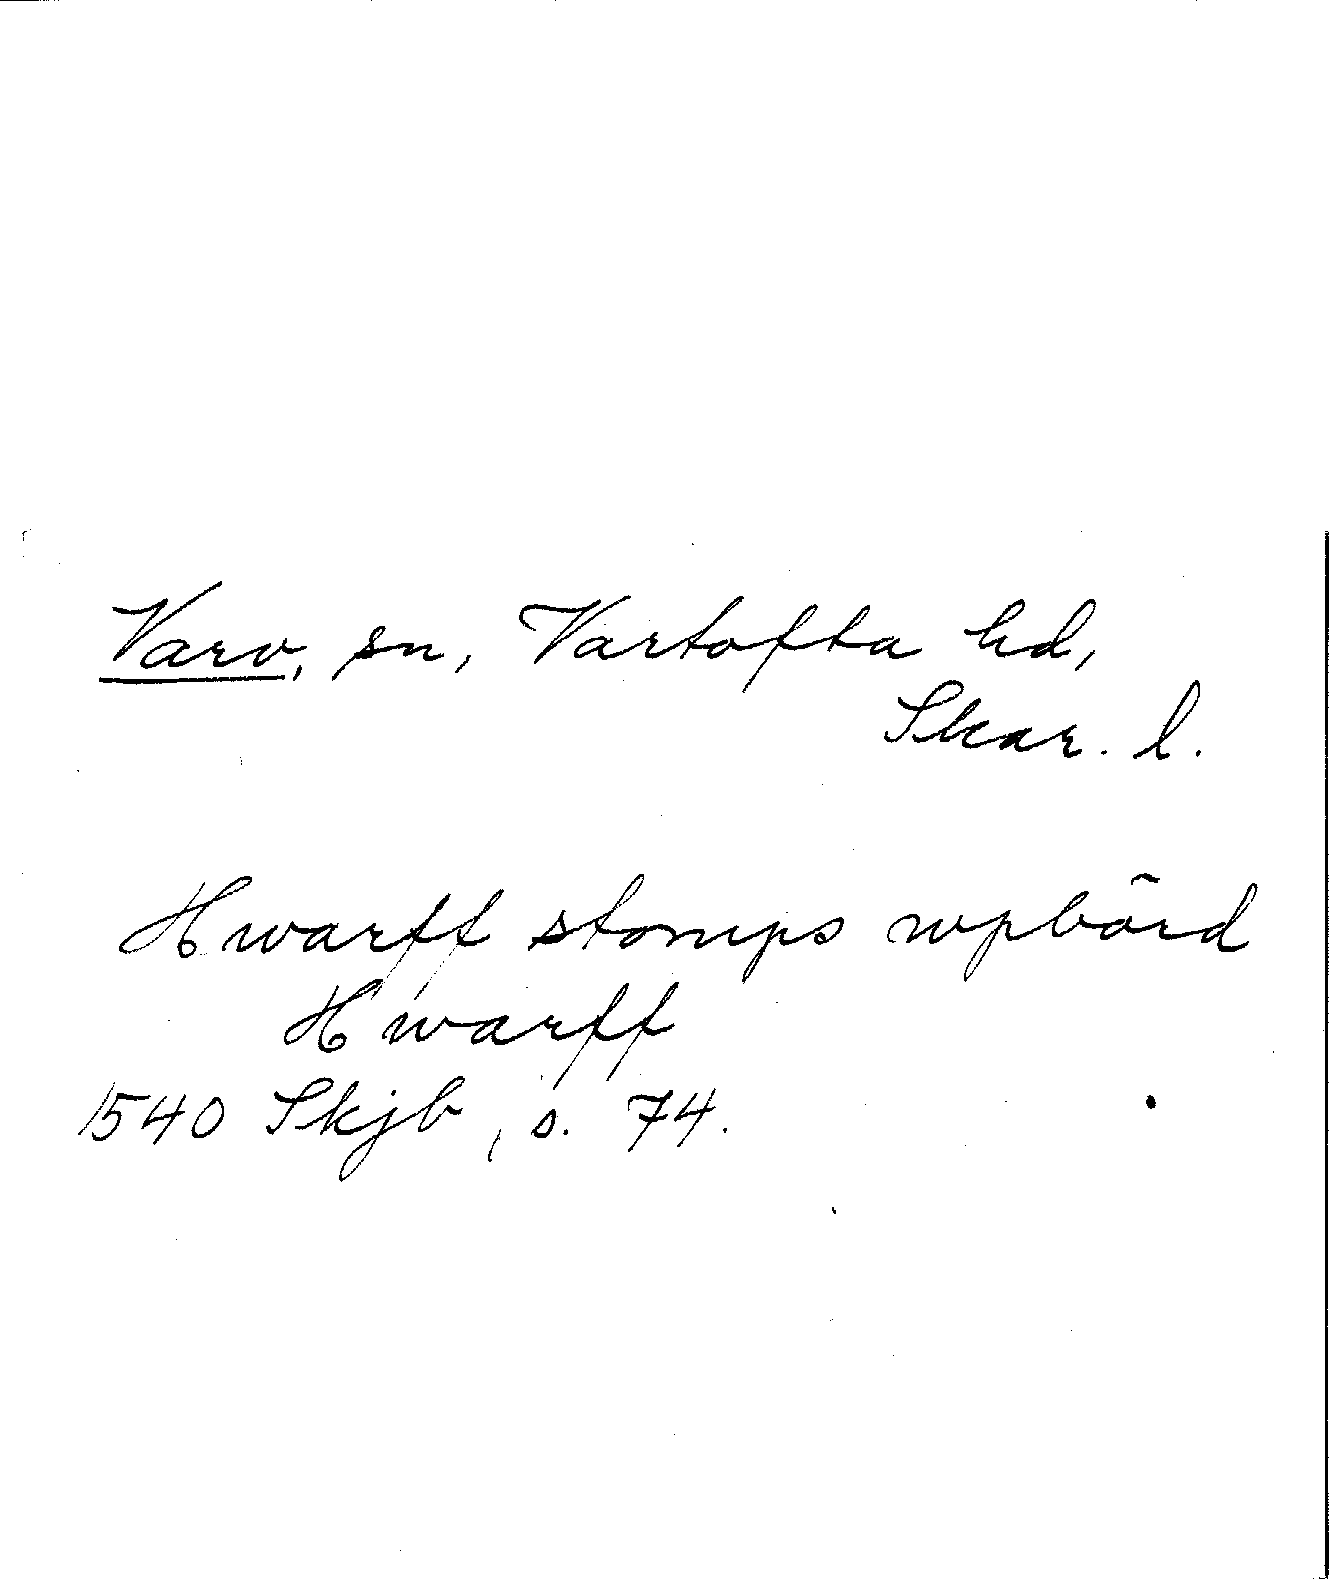 Varv, sn, Vartofta hd,
Skar. l.
Hwarff stomps wpbörd
Hwarff
1540 Skjb, s. 74.